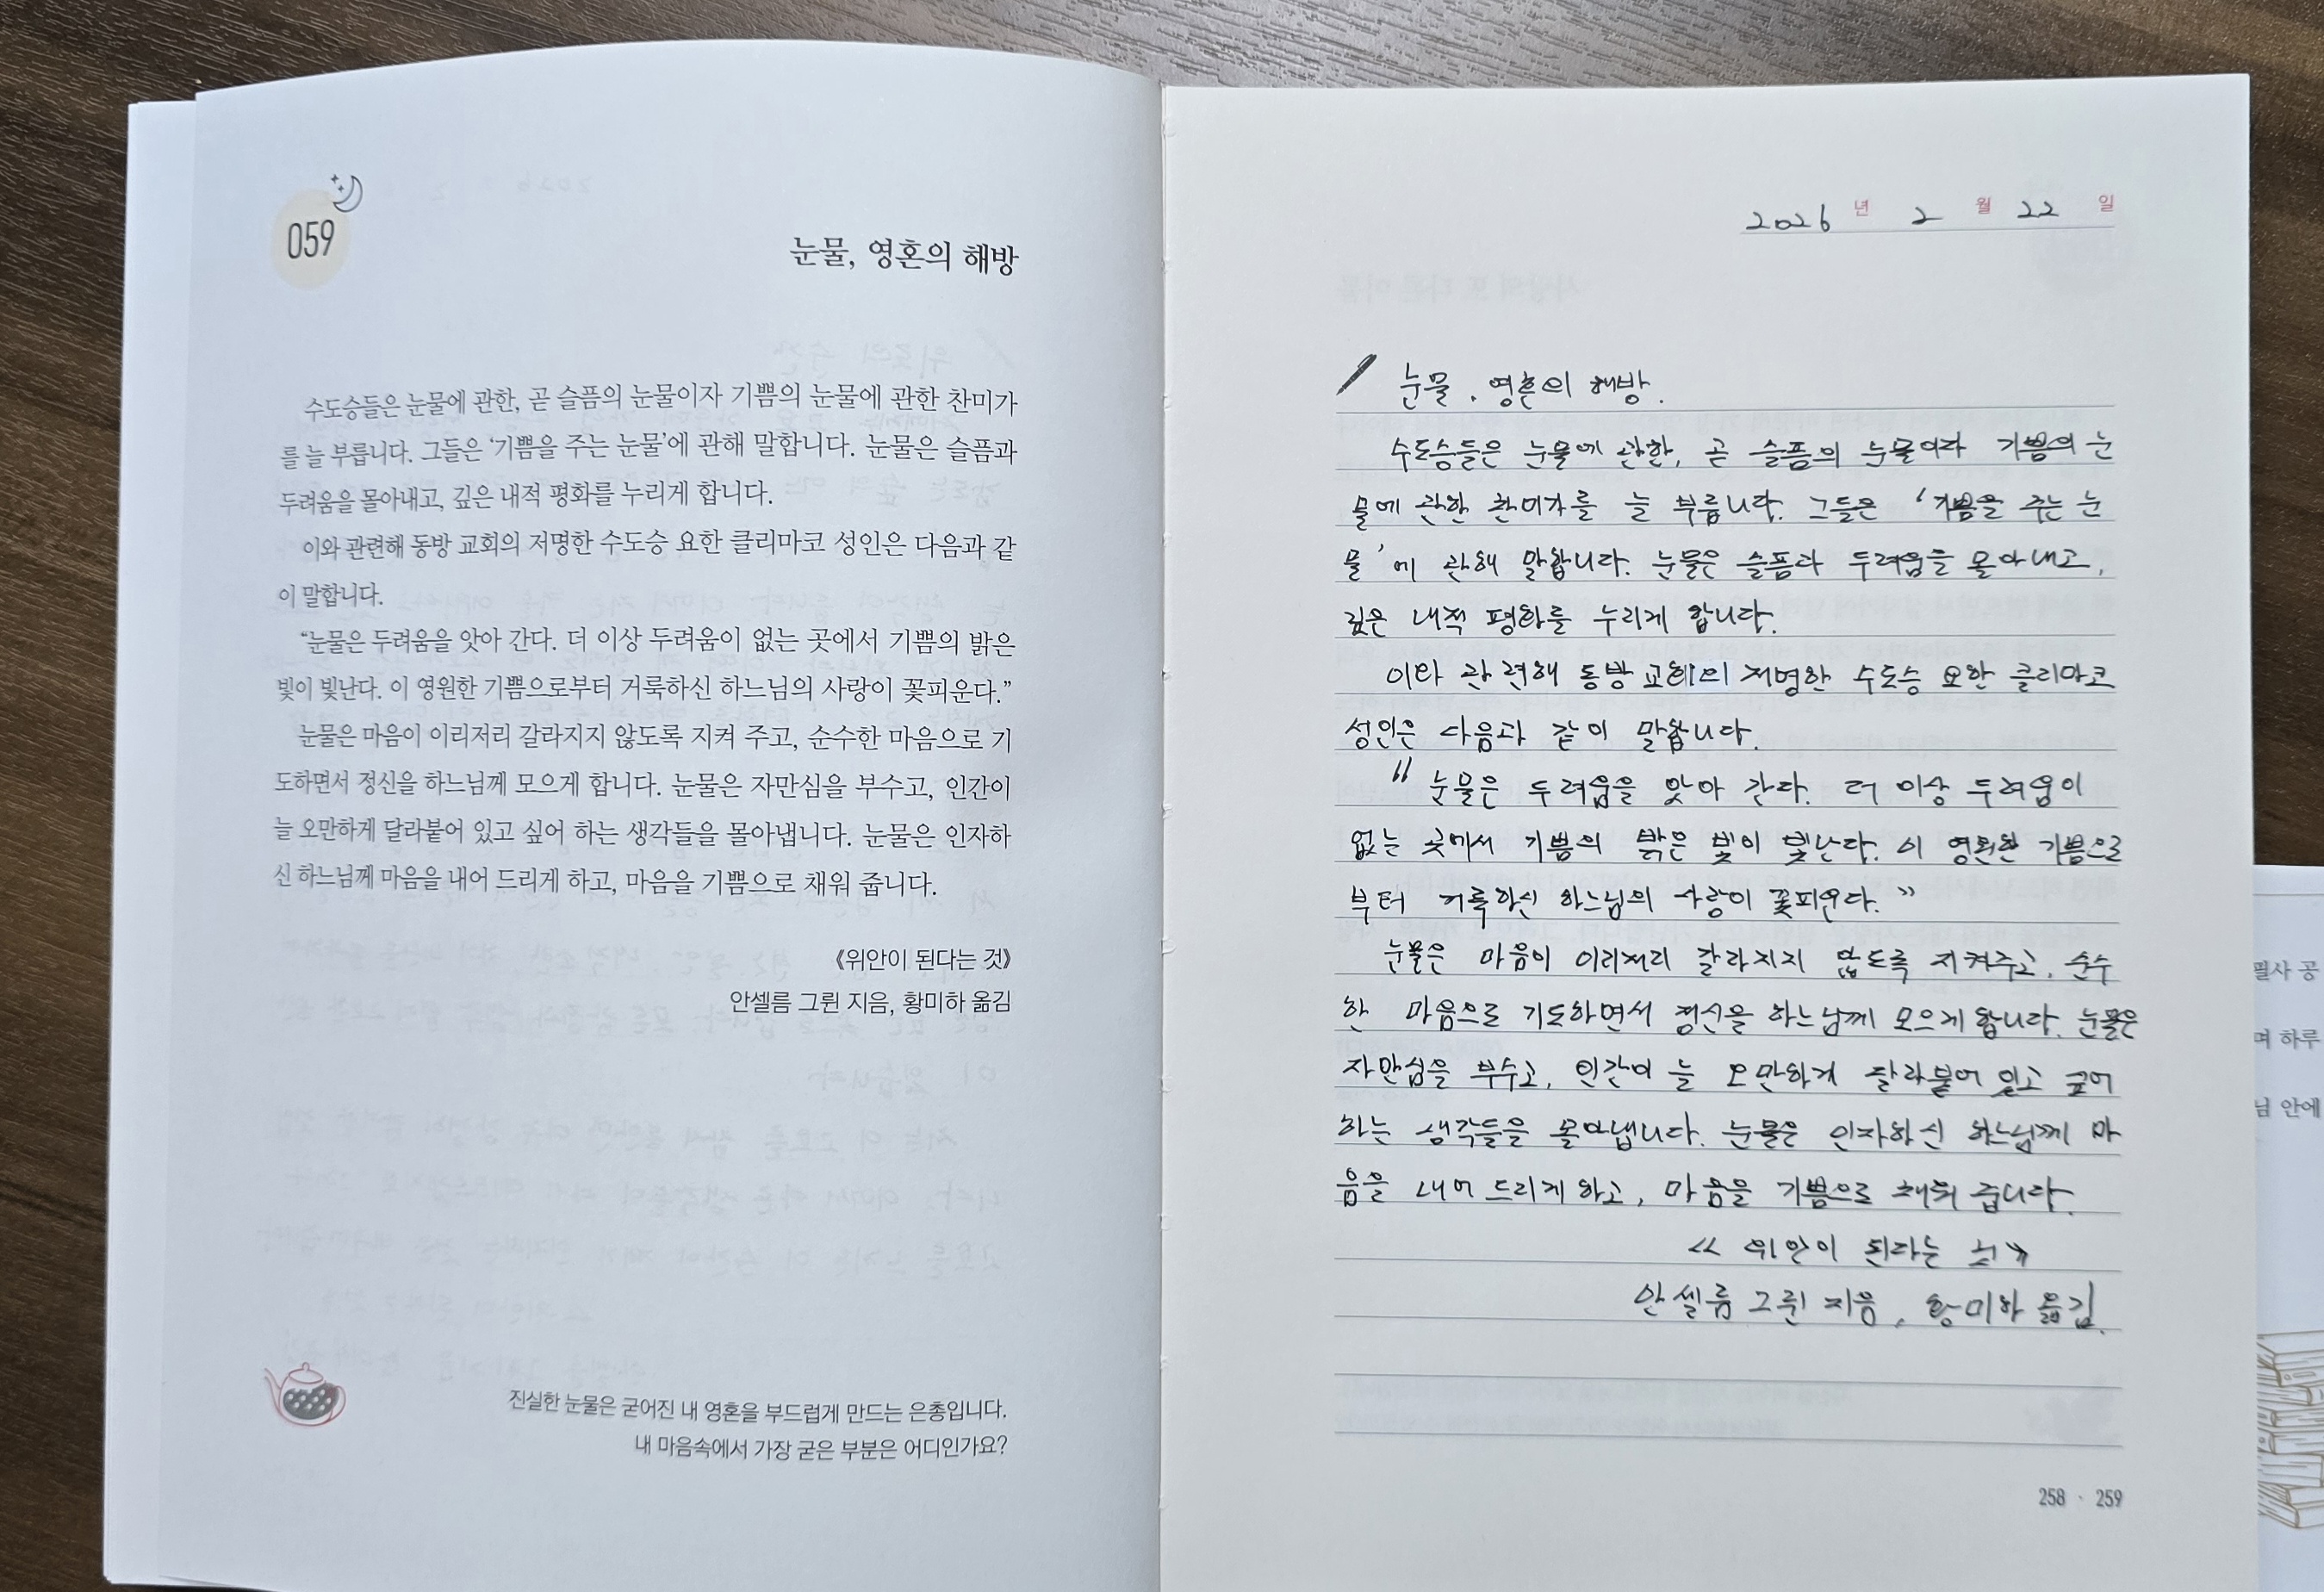 059
눈물, 영혼의 해방
수도승들은 눈물에 관한, 곧 슬픔의 눈물이자 기쁨의 눈물에 관한 찬미가
를 늘 부릅니다. 그들은 ‘기쁨을 주는 눈물’에 관해 말합니다. 눈물은 슬픔과
두려움을 몰아내고, 깊은 내적 평화를 누리게 합니다.
이와 관련해 동방 교회의 저명한 수도승 요한 클리마코 성인은 다음과 같
이 말합니다.
“눈물은 두려움을 앗아 간다. 더 이상 두려움이 없는 곳에서 기쁨의 밝은
빛이 빛난다. 이 영원한 기쁨으로부터 거룩하신 하느님의 사랑이 꽃피운다.”
눈물은 마음이 이리저리 갈라지지 않도록 지켜 주고, 순수한 마음으로 기
도하면서 정신을 하느님께 모으게 합니다. 눈물은 자만심을 부수고, 인간이
늘 오만하게 달라붙어 있고 싶어 하는 생각들을 몰아냅니다. 눈물은 인자하
신 하느님께 마음을 내어 드리게 하고, 마음을 기쁨으로 채워 줍니다.
《위안이 된다는 것》
안셀름 그륀 지음, 황미하 옮김
진실한 눈물은 굳어진 내 영혼을 부드럽게 만드는 은총입니다.
내 마음속에서 가장 굳은 부분은 어디인가요?
2026 년 2 월 22 일
눈물, 영혼의 해방.
수도승들은 눈물에 관한, 곧 슬픔의 눈물이자 기쁨의 눈
물에 관한 찬미가를 늘 부릅니다. 그들은 ‘기쁨을 주는 눈
물’에 관해 말합니다. 눈물은 슬픔과 두려움을 몰아내고,
깊은 내적 평화를 누리게 합니다.
이와 관련해 동방 교회의 저명한 수도승 요한 클리마코
성인은 다음과 같이 말합니다.
“눈물은 두려움을 앗아 간다. 더 이상 두려움이
없는 곳에서 기쁨의 밝은 빛이 빛난다. 이 영원한 기쁨으로
부터 거룩하신 하느님의 사랑이 꽃피운다.”
눈물은 마음이 이리저리 갈라지지 않도록 지켜주고, 순수
한 마음으로 기도하면서 정신을 하느님께 모으게 합니다. 눈물은
자만심을 부수고, 인간이 늘 오만하게 달라붙어 있고
하는 생각들을 몰아냅니다. 눈물은 인자하신 하느님께 마
음을 내어 드리게 하고, 마음을 기쁨으로 채워 줍니다.
《위안이 된다는 것》
안셀름 그륀 지음, 황미하 옮김.
258 · 259
필사 공
며 하루
님 안에